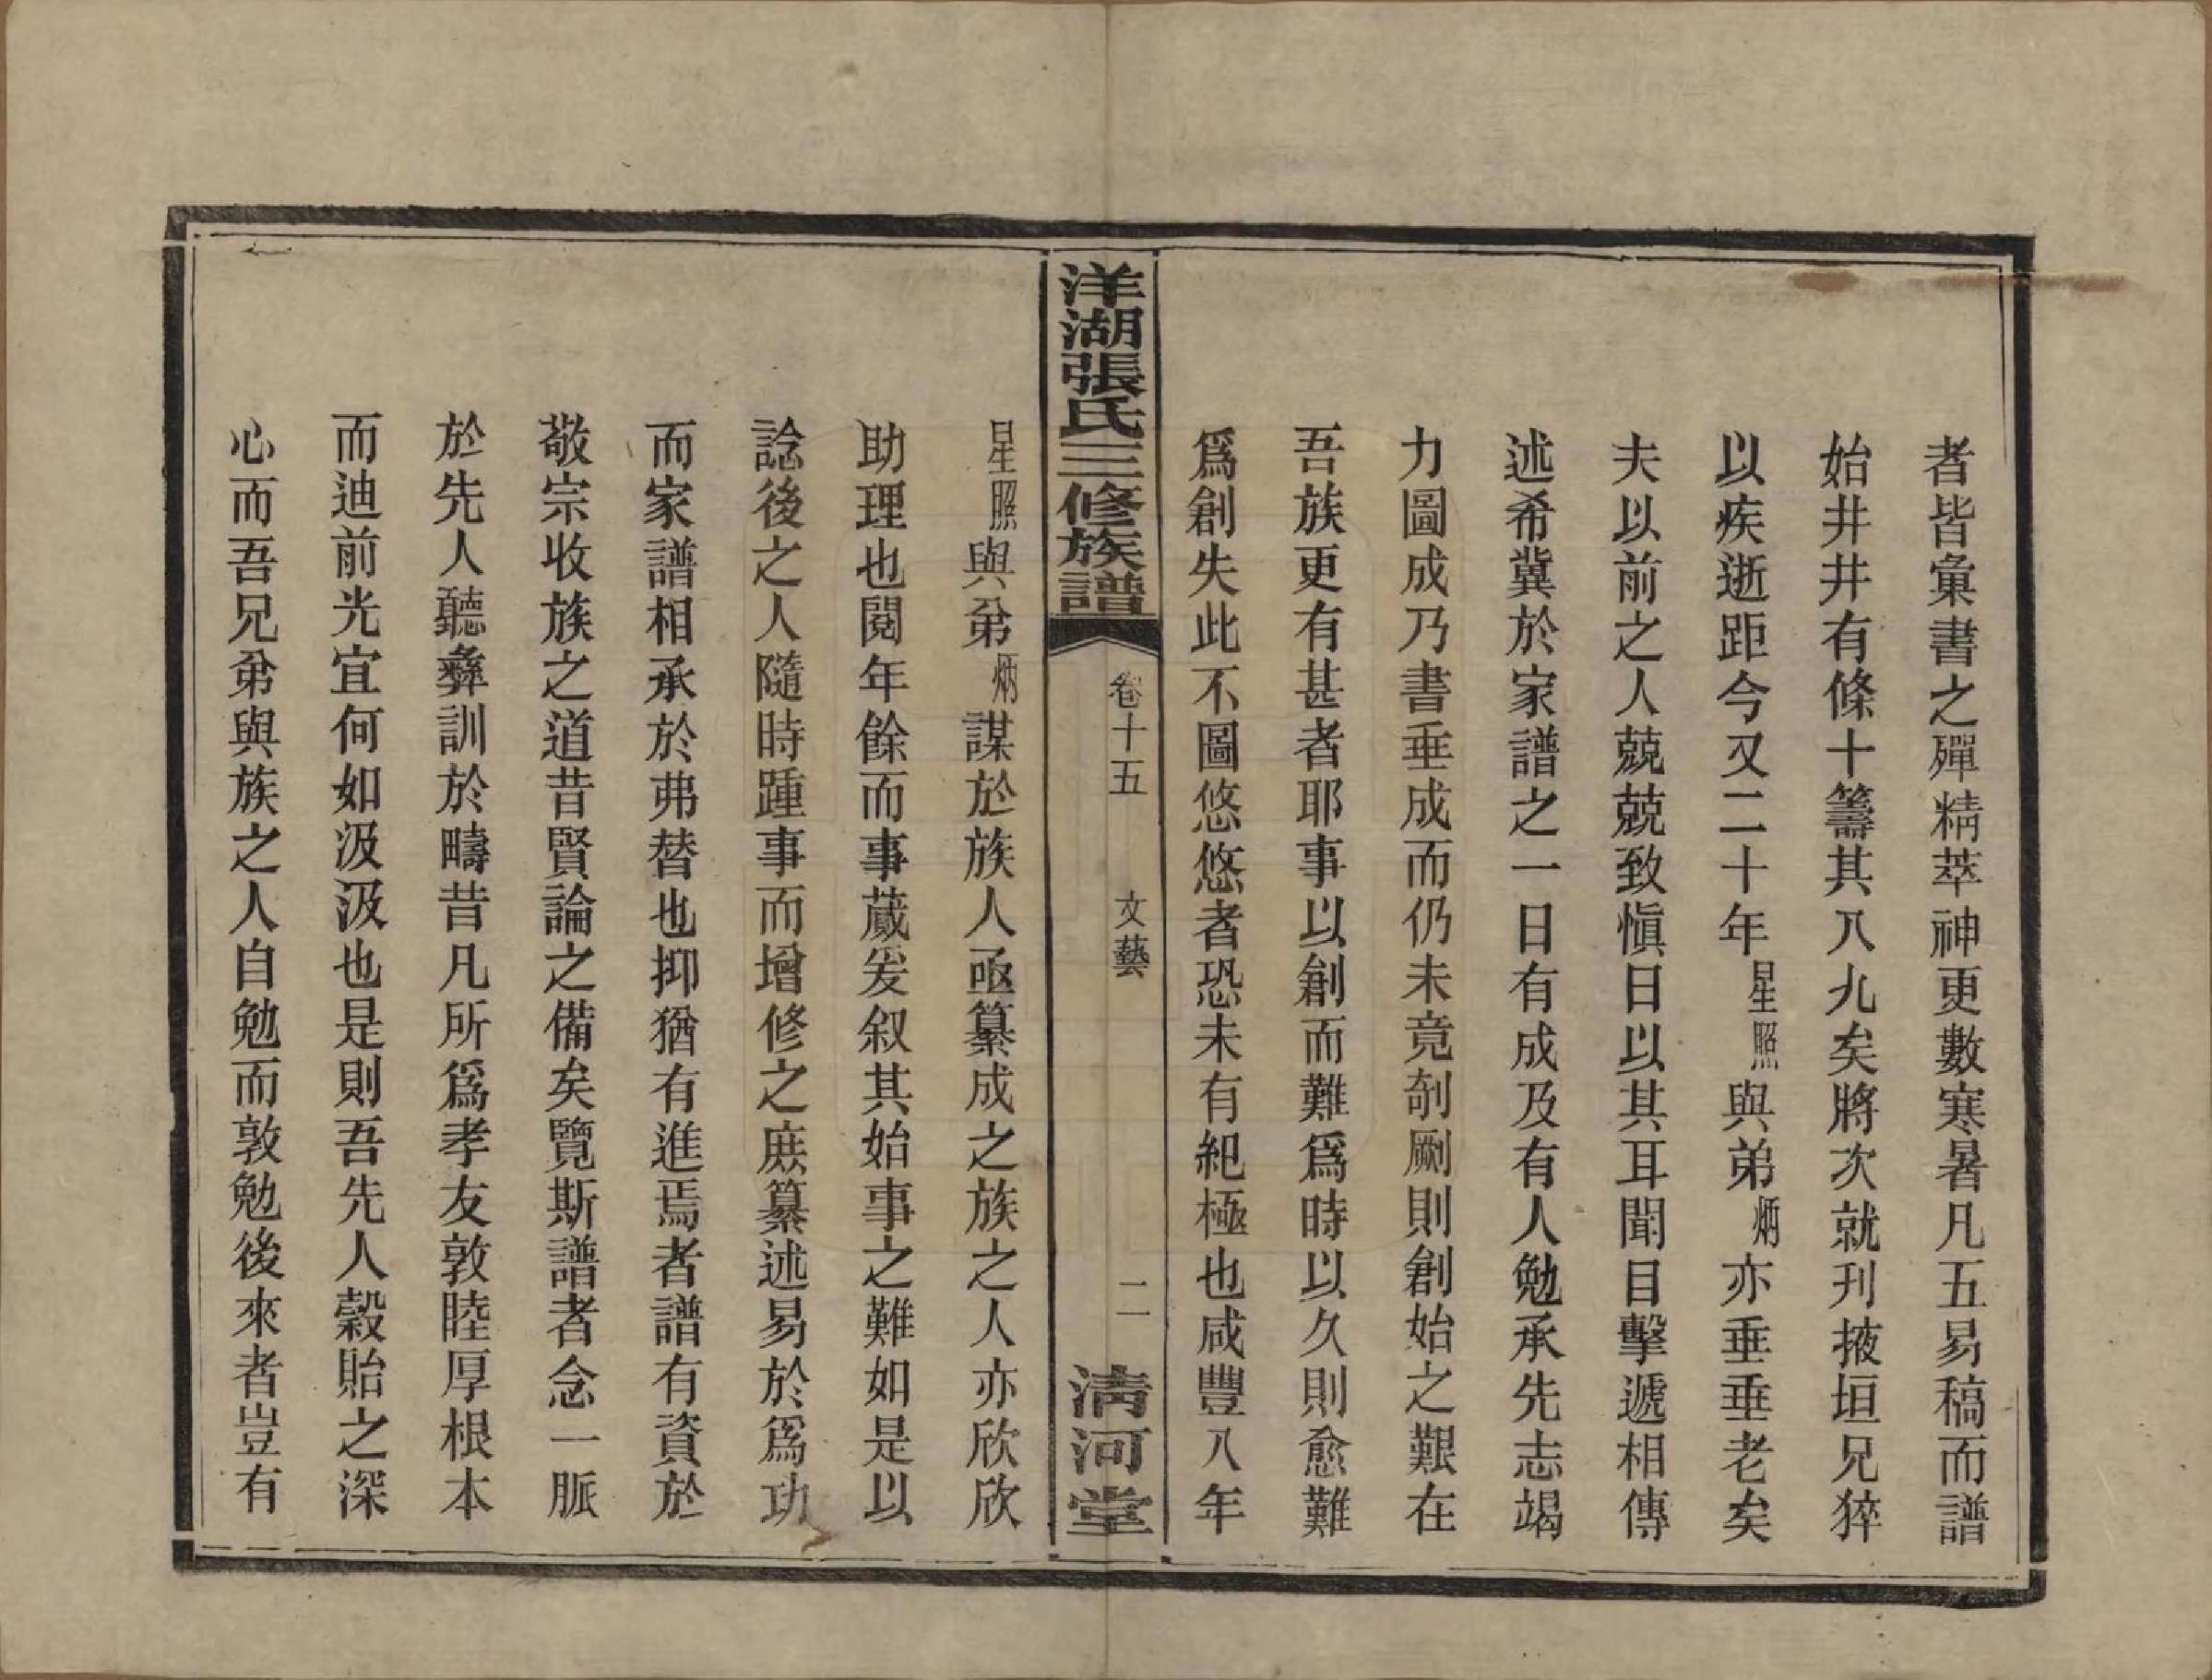 者皆彙書之殫精萃神更數寒暑凡五易稿而譜
始井井有條十籌其八九矣將次就刊掖垣兄猝
以疾逝距今又二十年星照與弟炳亦垂垂老矣
夫以前之人兢兢致愼日以其耳聞目擊遞相傳
述希冀於家譜之一日有成及有人勉承先志竭
力圖成乃書垂成而仍未竟剞劂則創始之艱在
吾族更有甚者耶事以創而難爲時以久則愈難
爲創失此不圖悠悠者恐未有紀極也咸豐八年
洋湖張氏三修族譜
卷十五
文藝
二
淸河堂
星照與弟炳謀於族人亟纂成之族之人亦欣欣
助理也閱年餘而事蕆爰叙其始事之難如是以
諗後之人隨時踵事而增修之庶纂述易於爲功
而家譜相承於弗替也抑猶有進焉者譜有資於
敬宗收族之道昔賢論之備矣覽斯譜者念一脈
於先人聽彝訓於疇昔凡所爲孝友敦睦厚根本
而迪前光宜何如汲汲也是則吾先人穀貽之深
心而吾兄弟與族之人自勉而敦勉後來者豈有